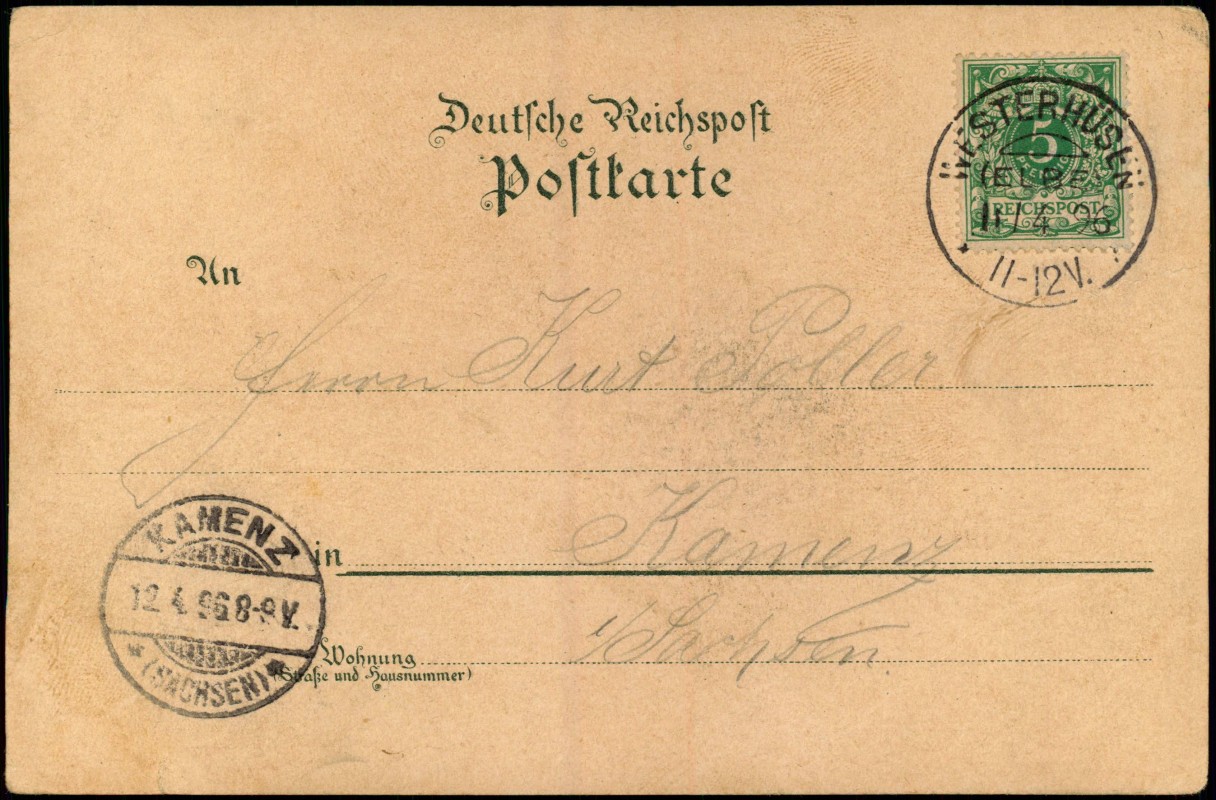 Deutsche Reichspost
Postkarte
WESTERHÜSEN
(ELBE)
11/4 96
11-12V.
5
PFENNIG
REICHSPOST
An
Herrn Kurt Poller
KAMENZ
12.4.96 8-9V.
(SACHSEN)
in Kamenz
i/Sachsen
Wohnung
(Straße und Hausnummer)